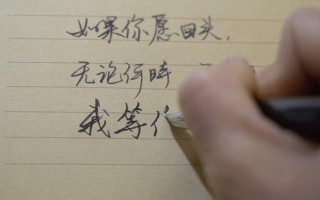 如果你愿回头,
无论何时
我等